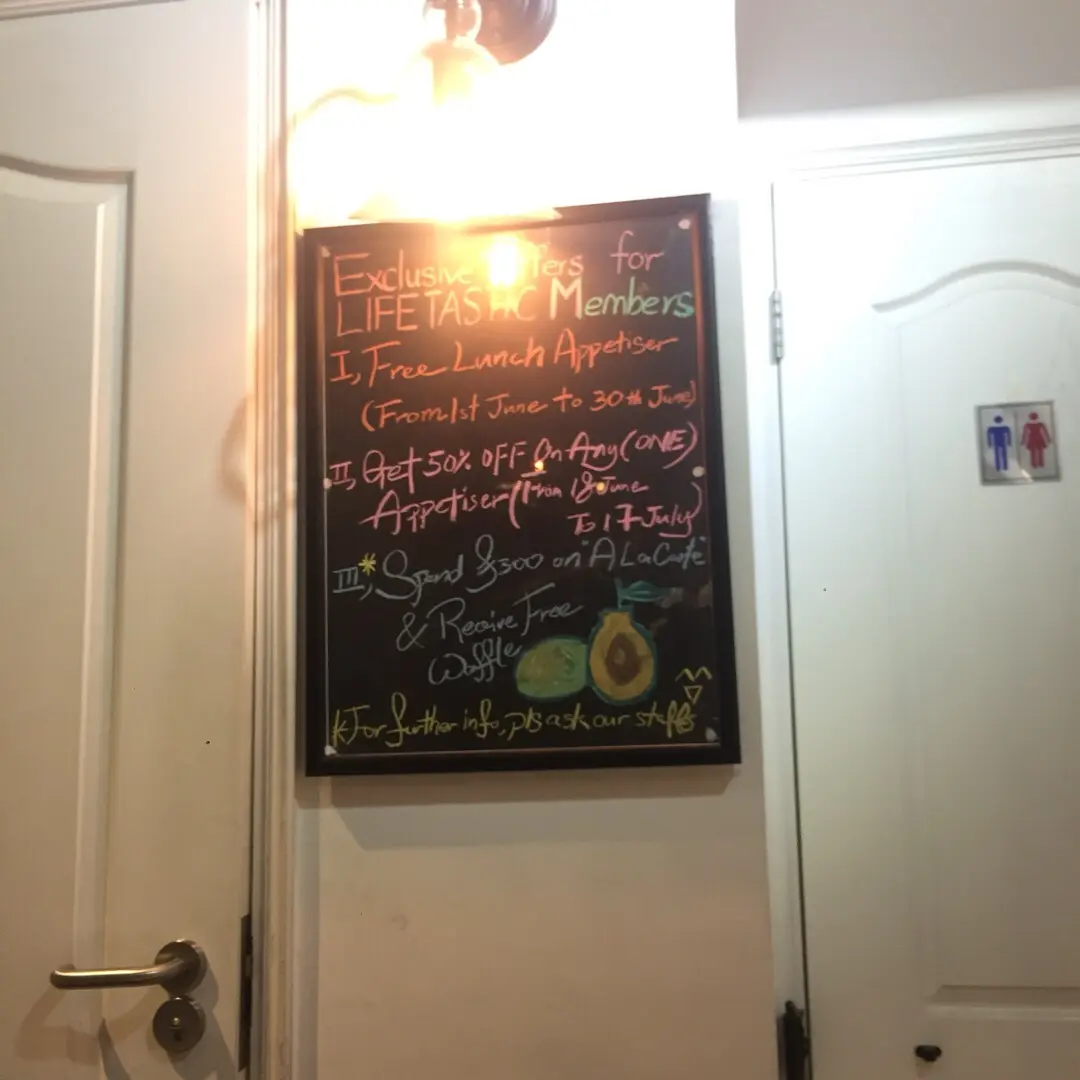 Exclusive Offers for
LIFETASTIC Members
I, Free Lunch Appetiser
(From 1st June to 30th June)
II, Get 50% OFF On Any (ONE)
Appetiser (From 18 June
To 17 July)
III*, Spend $300 on "A La Carte"
& Receive Free
Waffle
*For further info, pls ask our staffs